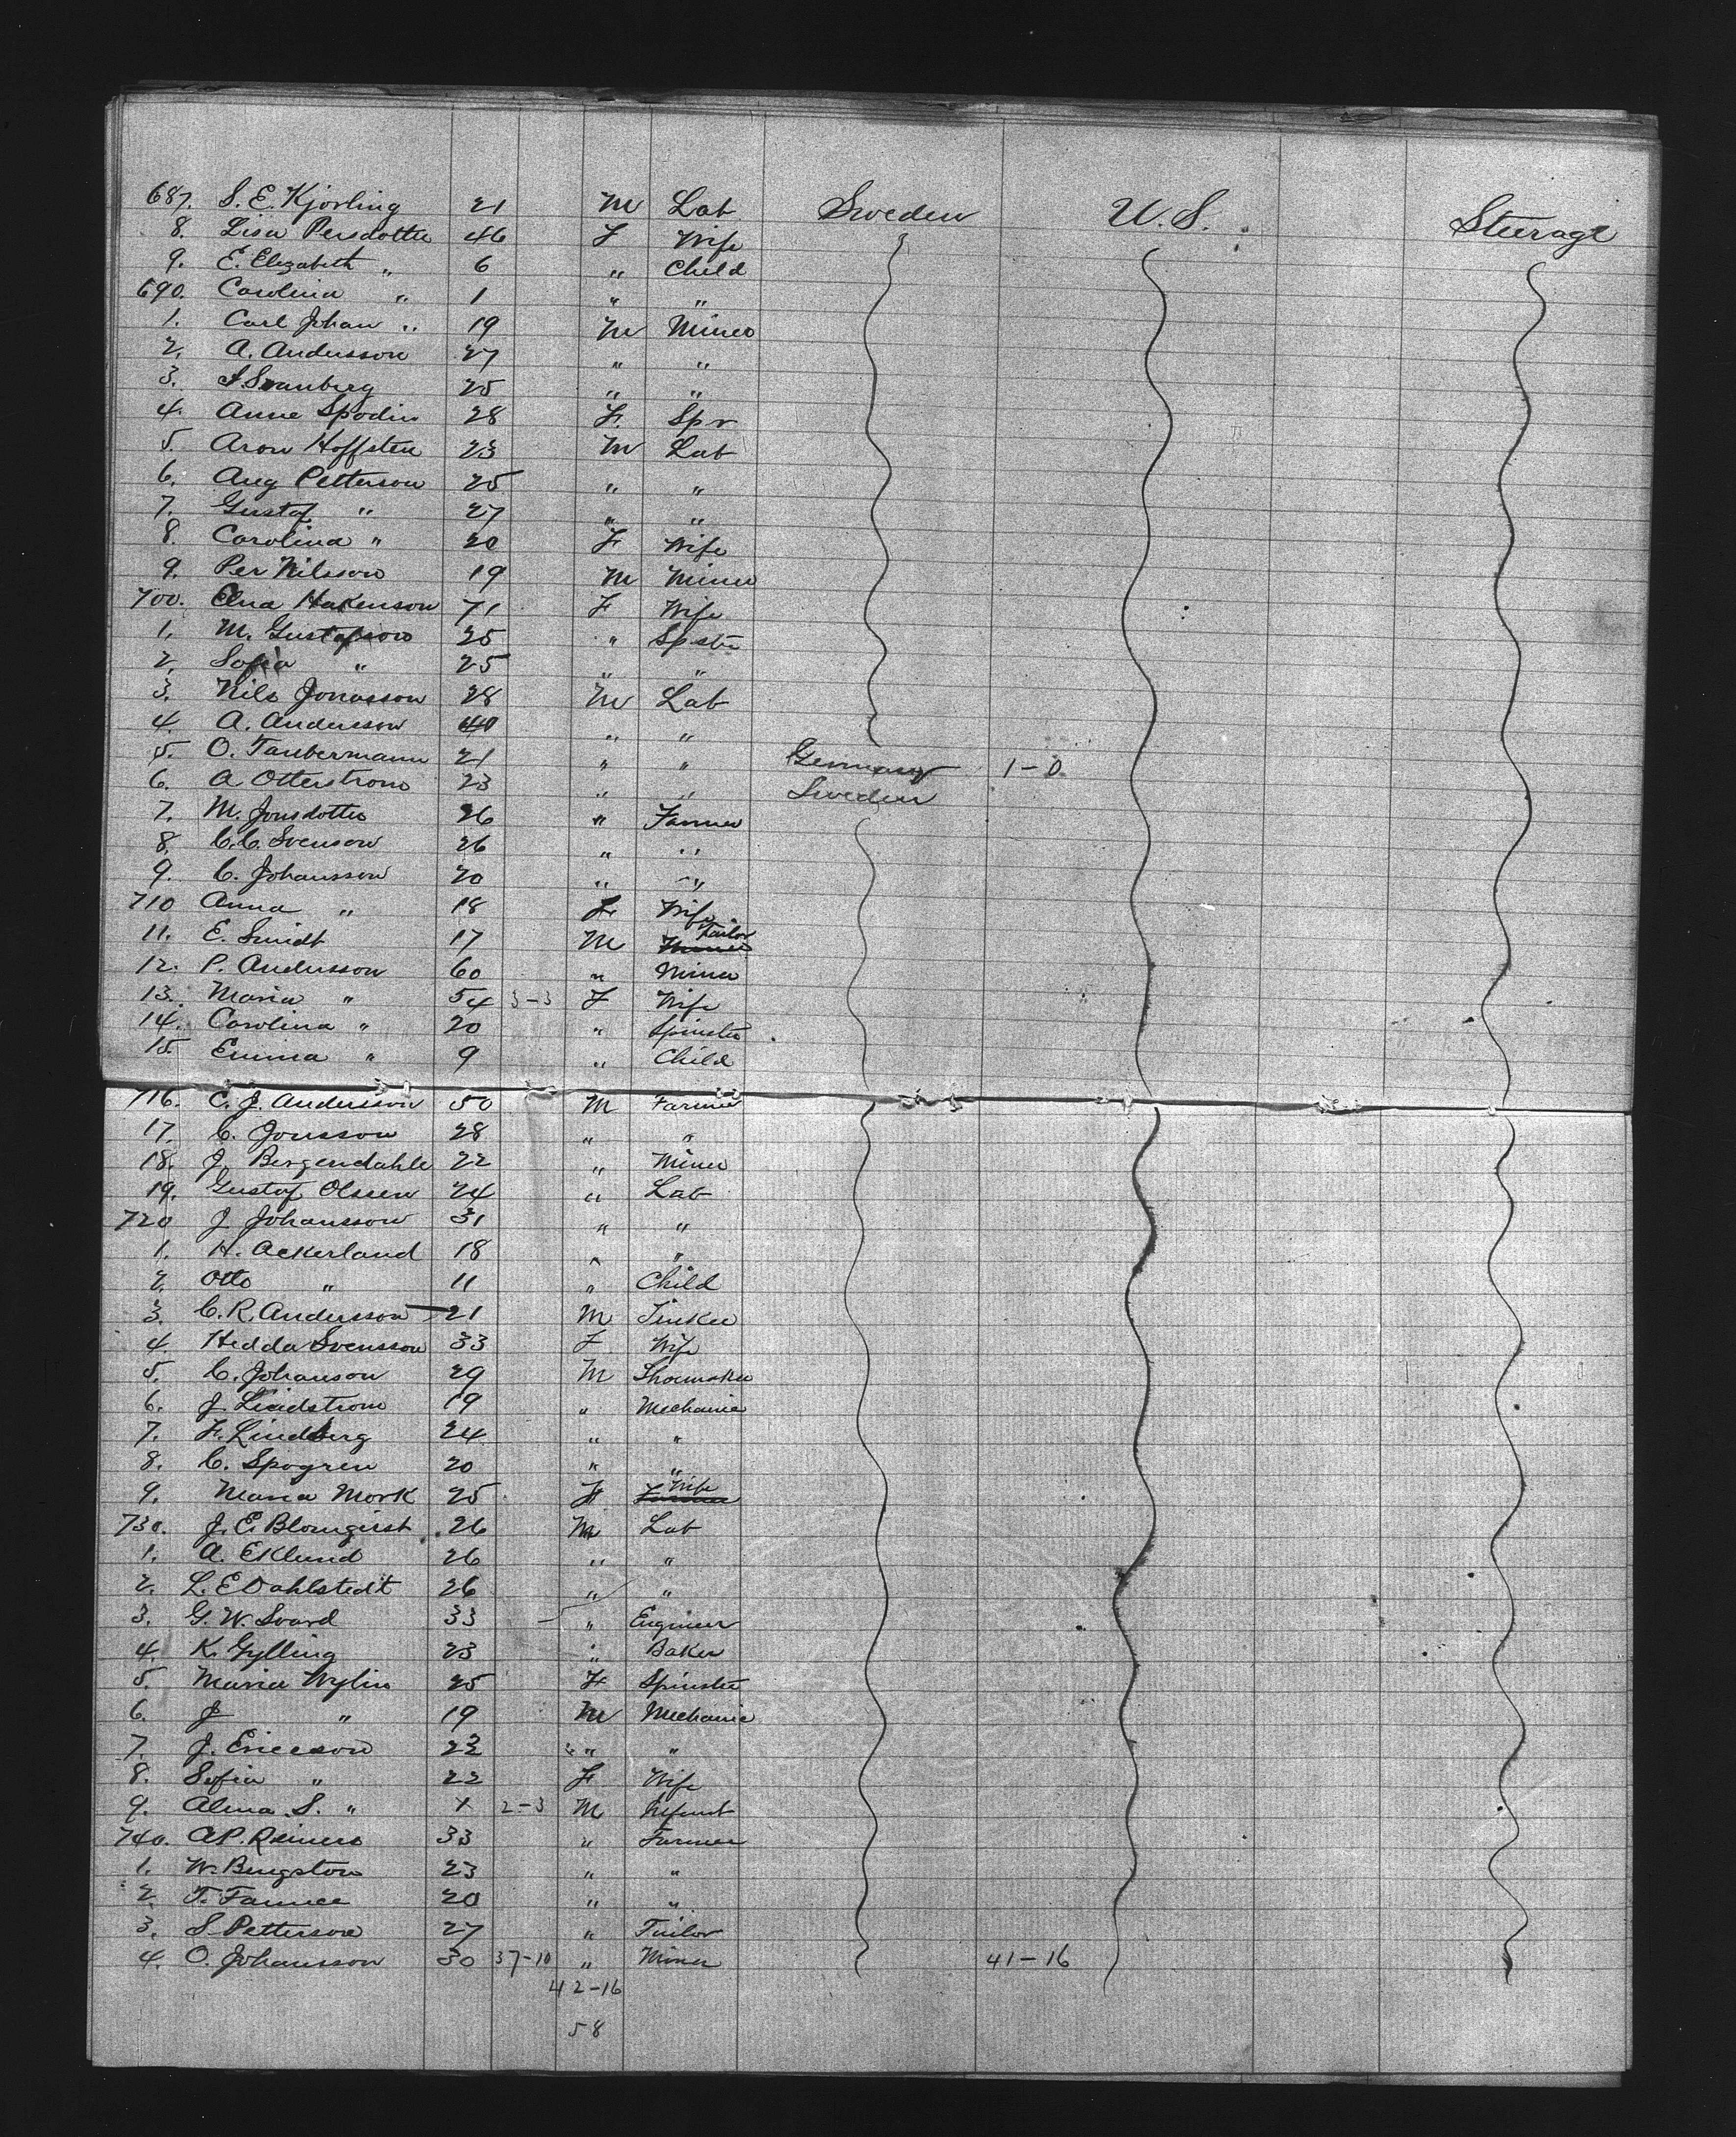 687. S. E. Kjorling 21 M Lab Sweden U.S. Steerage
8. Lisa Persdotter 46 F Wife
9. E. Elizabeth " 6 " Child
690. Carolina " 1 " "
1. Carl Johan " 19 M Miner
2. A. Andersson 27 " "
3. Svanberg 25 " "
4. Anne Spodin 28 F Spr
5. Aron Hoffsten 23 M Lab
6. Aug Petterson 25 " "
7. Gustaf " 27 " "
8. Carolina " 20 F Wife
9. Per Nilsson 19 M Miner
700. Hakenson 71 F Wife
1. M. Gustafson 25 " Spstr
2. Sofia " 25 " "
3. Nils Jonasson 28 M Lab
4. A. Andersson 40 " "
5. O. Taubermann 21 " " Germany 1-0
6. A Otterstrom 23 " " Sweden
7. M. Jonsdotter 26 " Farmer
8. C. C. Svenson 26 " "
9. C. Johansson 20 " "
710 Anna " 18 F Wife
11. E. Smidt 17 M Tailor
12. P. Andersson 60 " Miner
13. Maria " 54 3-3 F Wife
14. Carolina " 20 " Spinster
15. Emma " 9 " Child
716. C. J. Andersson 50 M Farmer
17. C. Jonsson 28 " "
18. J. Bergendahle 22 " Miner
19. Gustaf Olssen 24 " Lab
720 J Johansson 31 " "
1. H. Ackerland 18 " "
2. Otto " 11 " Child
3. C. R. Andersson 21 M Tinker
4. Hedda Svensson 33 F Wife
5. C. Johanson 29 M Shoemaker
6. J. Lindstrom 19 " Mechanic
7. F. Lindberg 24 " "
8. C. Spogren 20 " "
9. Maria Mork 25 F Wife
730. J. E. Blomqvist 26 M Lab
1. A. Eklund 26 " "
2. L. E Dahlstedt 26 " "
3. G. W. Svard 33 " Engineer
4. K. Gylling 23 " Baker
5. Maria Nylin 25 F Spinster
6. J " 19 M Mechanic
7. J. Ericsson 22 " "
8. Sofia " 22 F Wife
9. Alma S. " X 2-3 M Infant
740. A P. Reiners 33 " Farmer
1. W. Bengston 23 " "
2. T. 20 " "
3. S. Petterson 27 " Tailor
4. O. Johansson 30 37-10 " Miner 41-16
42-16
58